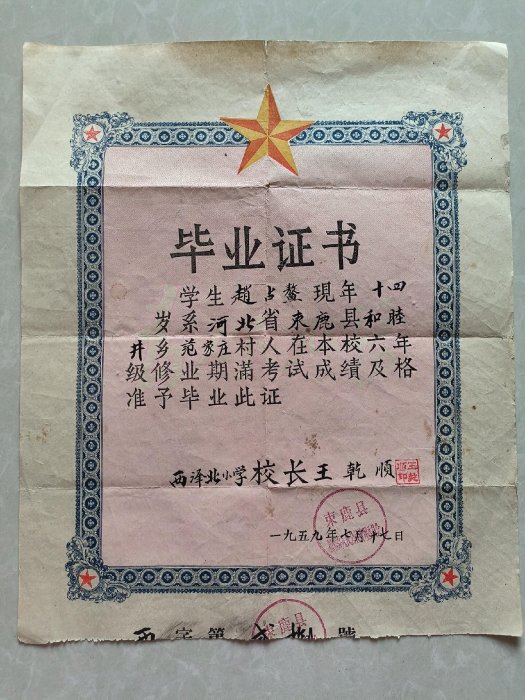 毕业证书
学生趙占鳌現年十四
岁系河北省束鹿县和睦
井乡范家庄村人在本校六年
级修业期滿考试成績及格
准予毕业此证
西泽北小学校长王乾順
王乾
順印
束鹿县
一九五九年七月十七日
束鹿县
西字第 號